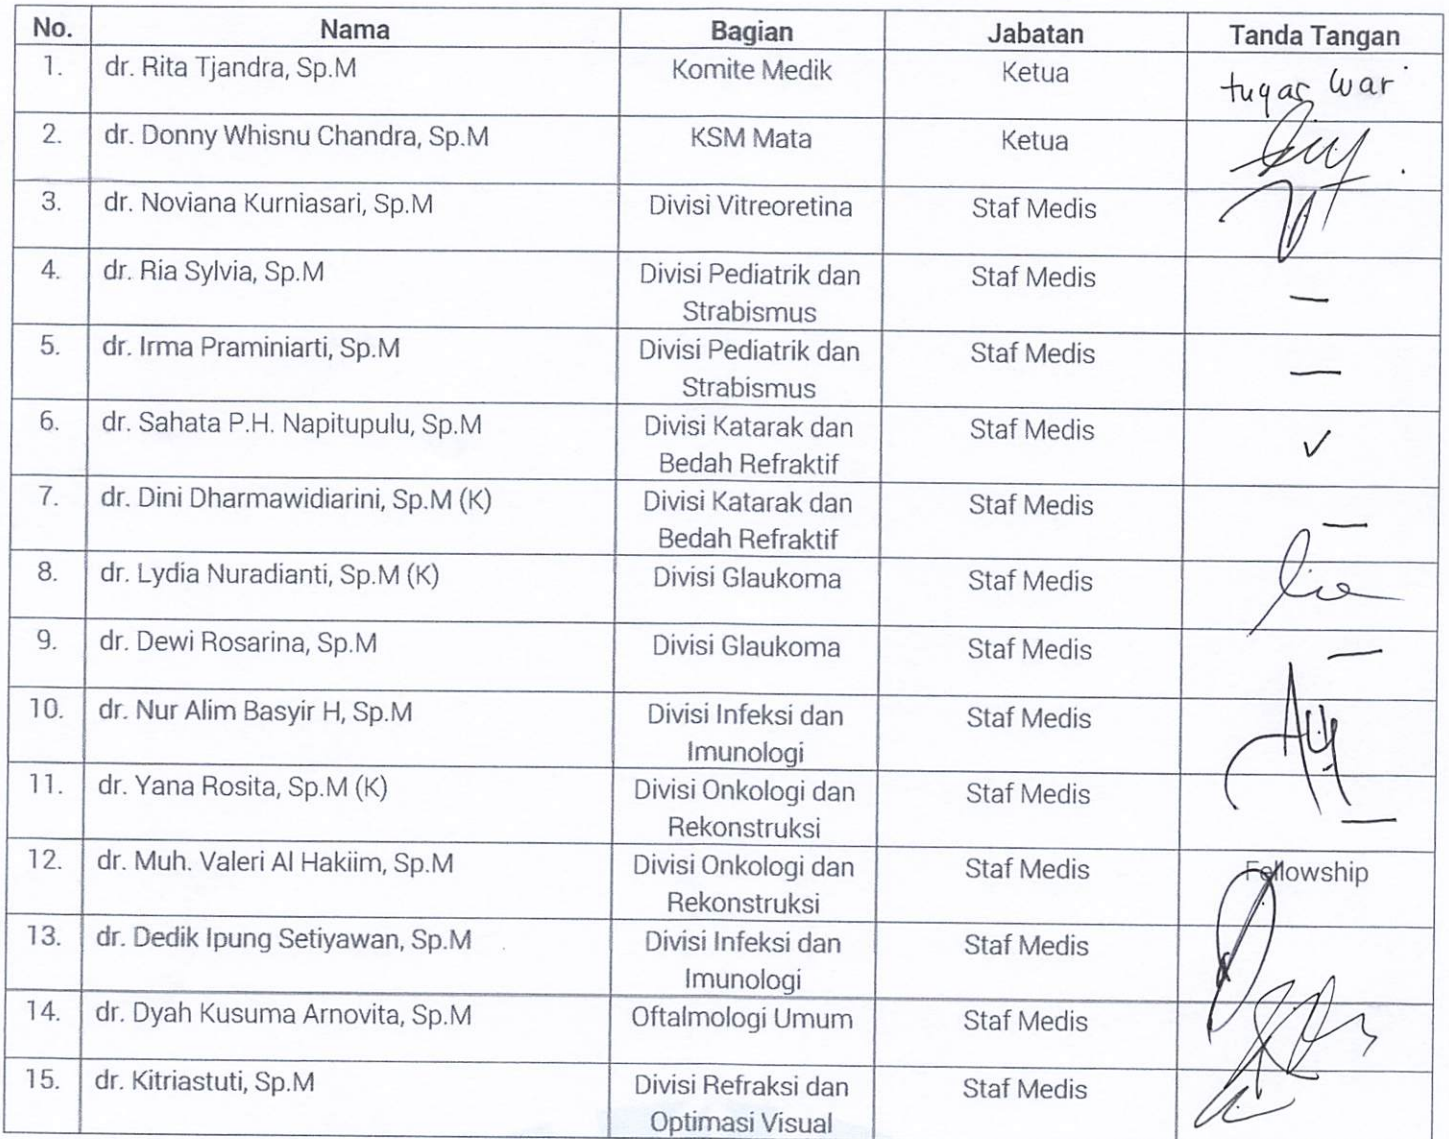 No. Nama Bagian Jabatan Tanda Tangan
1. dr. Rita Tjandra, Sp.M Komite Medik Ketua tugas luar
2. dr. Donny Whisnu Chandra, Sp.M KSM Mata Ketua
3. dr. Noviana Kurniasari, Sp.M Divisi Vitreoretina Staf Medis
4. dr. Ria Sylvia, Sp.M Divisi Pediatrik dan Staf Medis —
Strabismus
5. dr. Irma Praminiarti, Sp.M Divisi Pediatrik dan Staf Medis —
Strabismus
6. dr. Sahata P.H. Napitupulu, Sp.M Divisi Katarak dan Staf Medis ✓
Bedah Refraktif
7. dr. Dini Dharmawidiarini, Sp.M (K) Divisi Katarak dan Staf Medis —
Bedah Refraktif
8. dr. Lydia Nuradianti, Sp.M (K) Divisi Glaukoma Staf Medis
9. dr. Dewi Rosarina, Sp.M Divisi Glaukoma Staf Medis —
10. dr. Nur Alim Basyir H, Sp.M Divisi Infeksi dan Staf Medis
Imunologi
11. dr. Yana Rosita, Sp.M (K) Divisi Onkologi dan Staf Medis —
Rekonstruksi
12. dr. Muh. Valeri Al Hakiim, Sp.M Divisi Onkologi dan Staf Medis Fellowship
Rekonstruksi
13. dr. Dedik Ipung Setiyawan, Sp.M Divisi Infeksi dan Staf Medis
Imunologi
14. dr. Dyah Kusuma Arnovita, Sp.M Oftalmologi Umum Staf Medis
15. dr. Kitriastuti, Sp.M Divisi Refraksi dan Staf Medis
Optimasi Visual